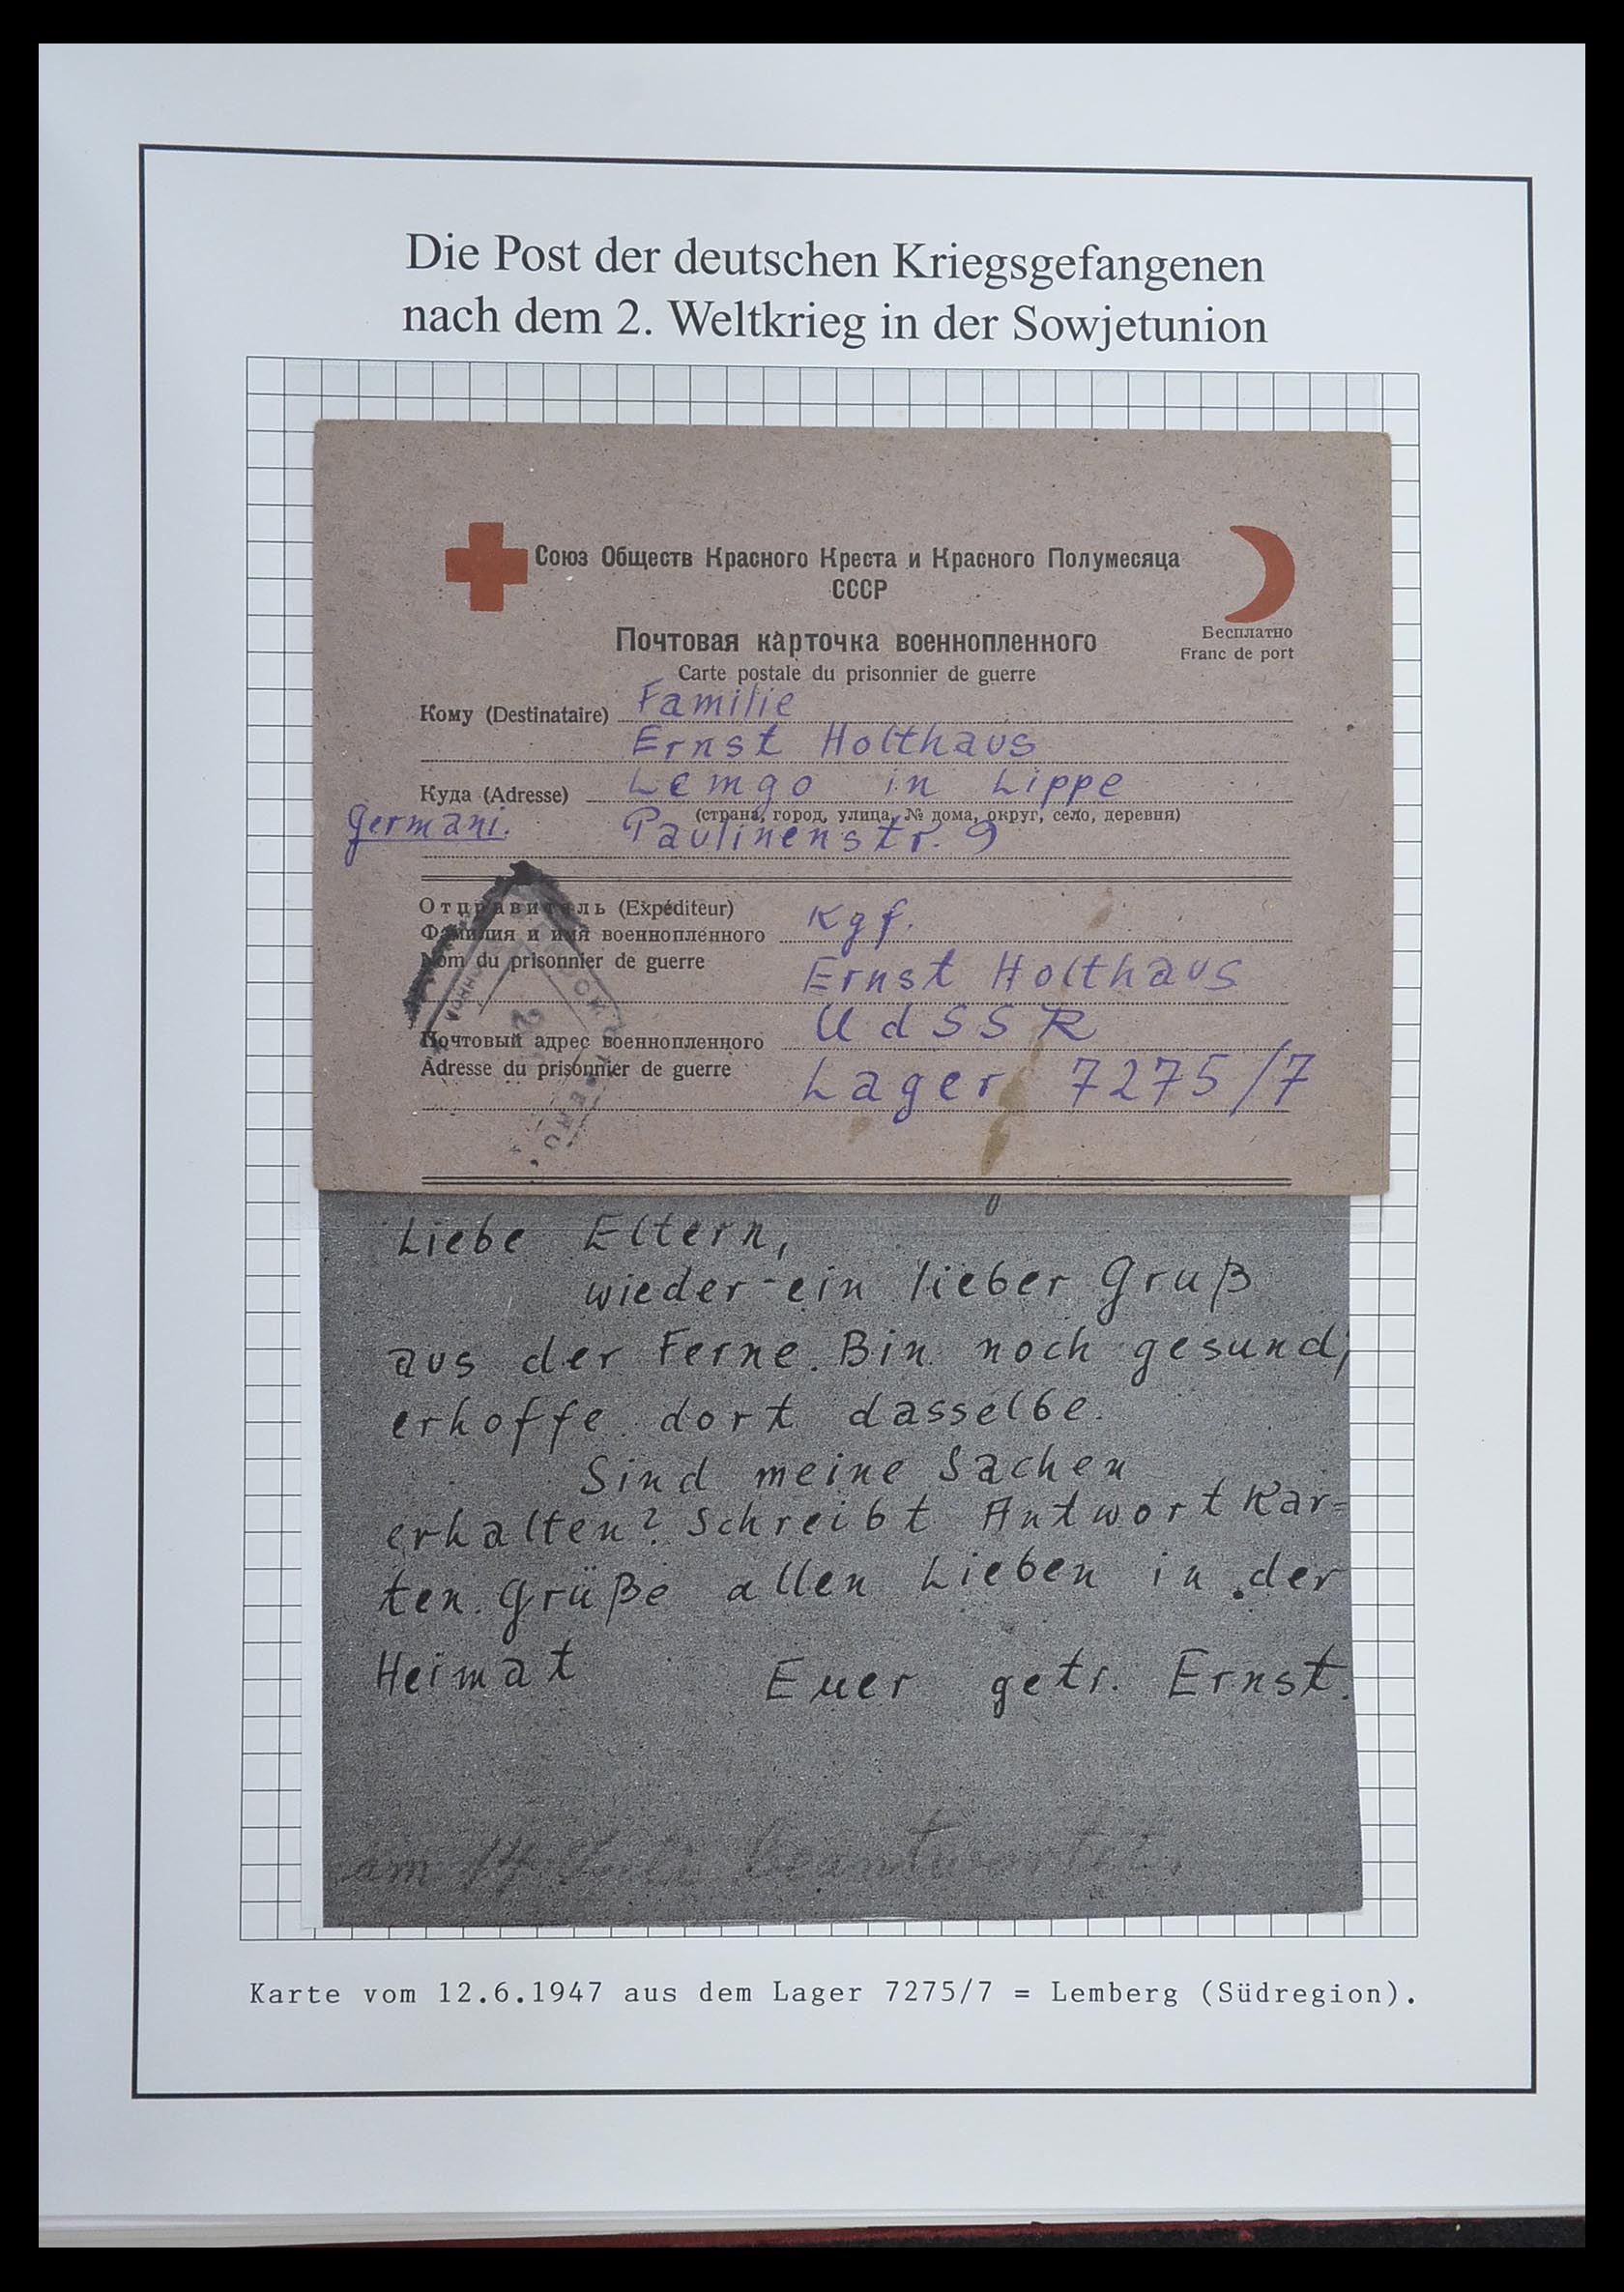 Die Post der deutschen Kriegsgefangenen
nach dem 2. Weltkrieg in der Sowjetunion
Союз Обществ Красного Креста и Красного Полумесяца
СССР
Бесплатно
Franc de port
Почтовая карточка военнопленного
Carte postale du prisonnier de guerre
Кому (Destinataire) Familie
Ernst Holthaus
Куда (Adresse) Lemgo in Lippe
(страна, город, улица, № дома, округ, село, деревня)
Germani. Paulinenstr. 9
Отправитель (Expéditeur)
Фамилия и имя военнопленного Kgf.
Nom du prisonnier de guerre Ernst Holthaus
Почтовый адрес военнопленного UdSSR
Adresse du prisonnier de guerre Lager 7275/7
Liebe Eltern,
wieder ein lieber Gruß
aus der Ferne. Bin noch gesund,
erhoffe dort dasselbe.
Sind meine Sachen
erhalten? Schreibt Antwort Kar=
ten. Grüße allen Lieben in der
Heimat Euer getr. Ernst.
am 14. beantwortet.
Karte vom 12.6.1947 aus dem Lager 7275/7 = Lemberg (Südregion).